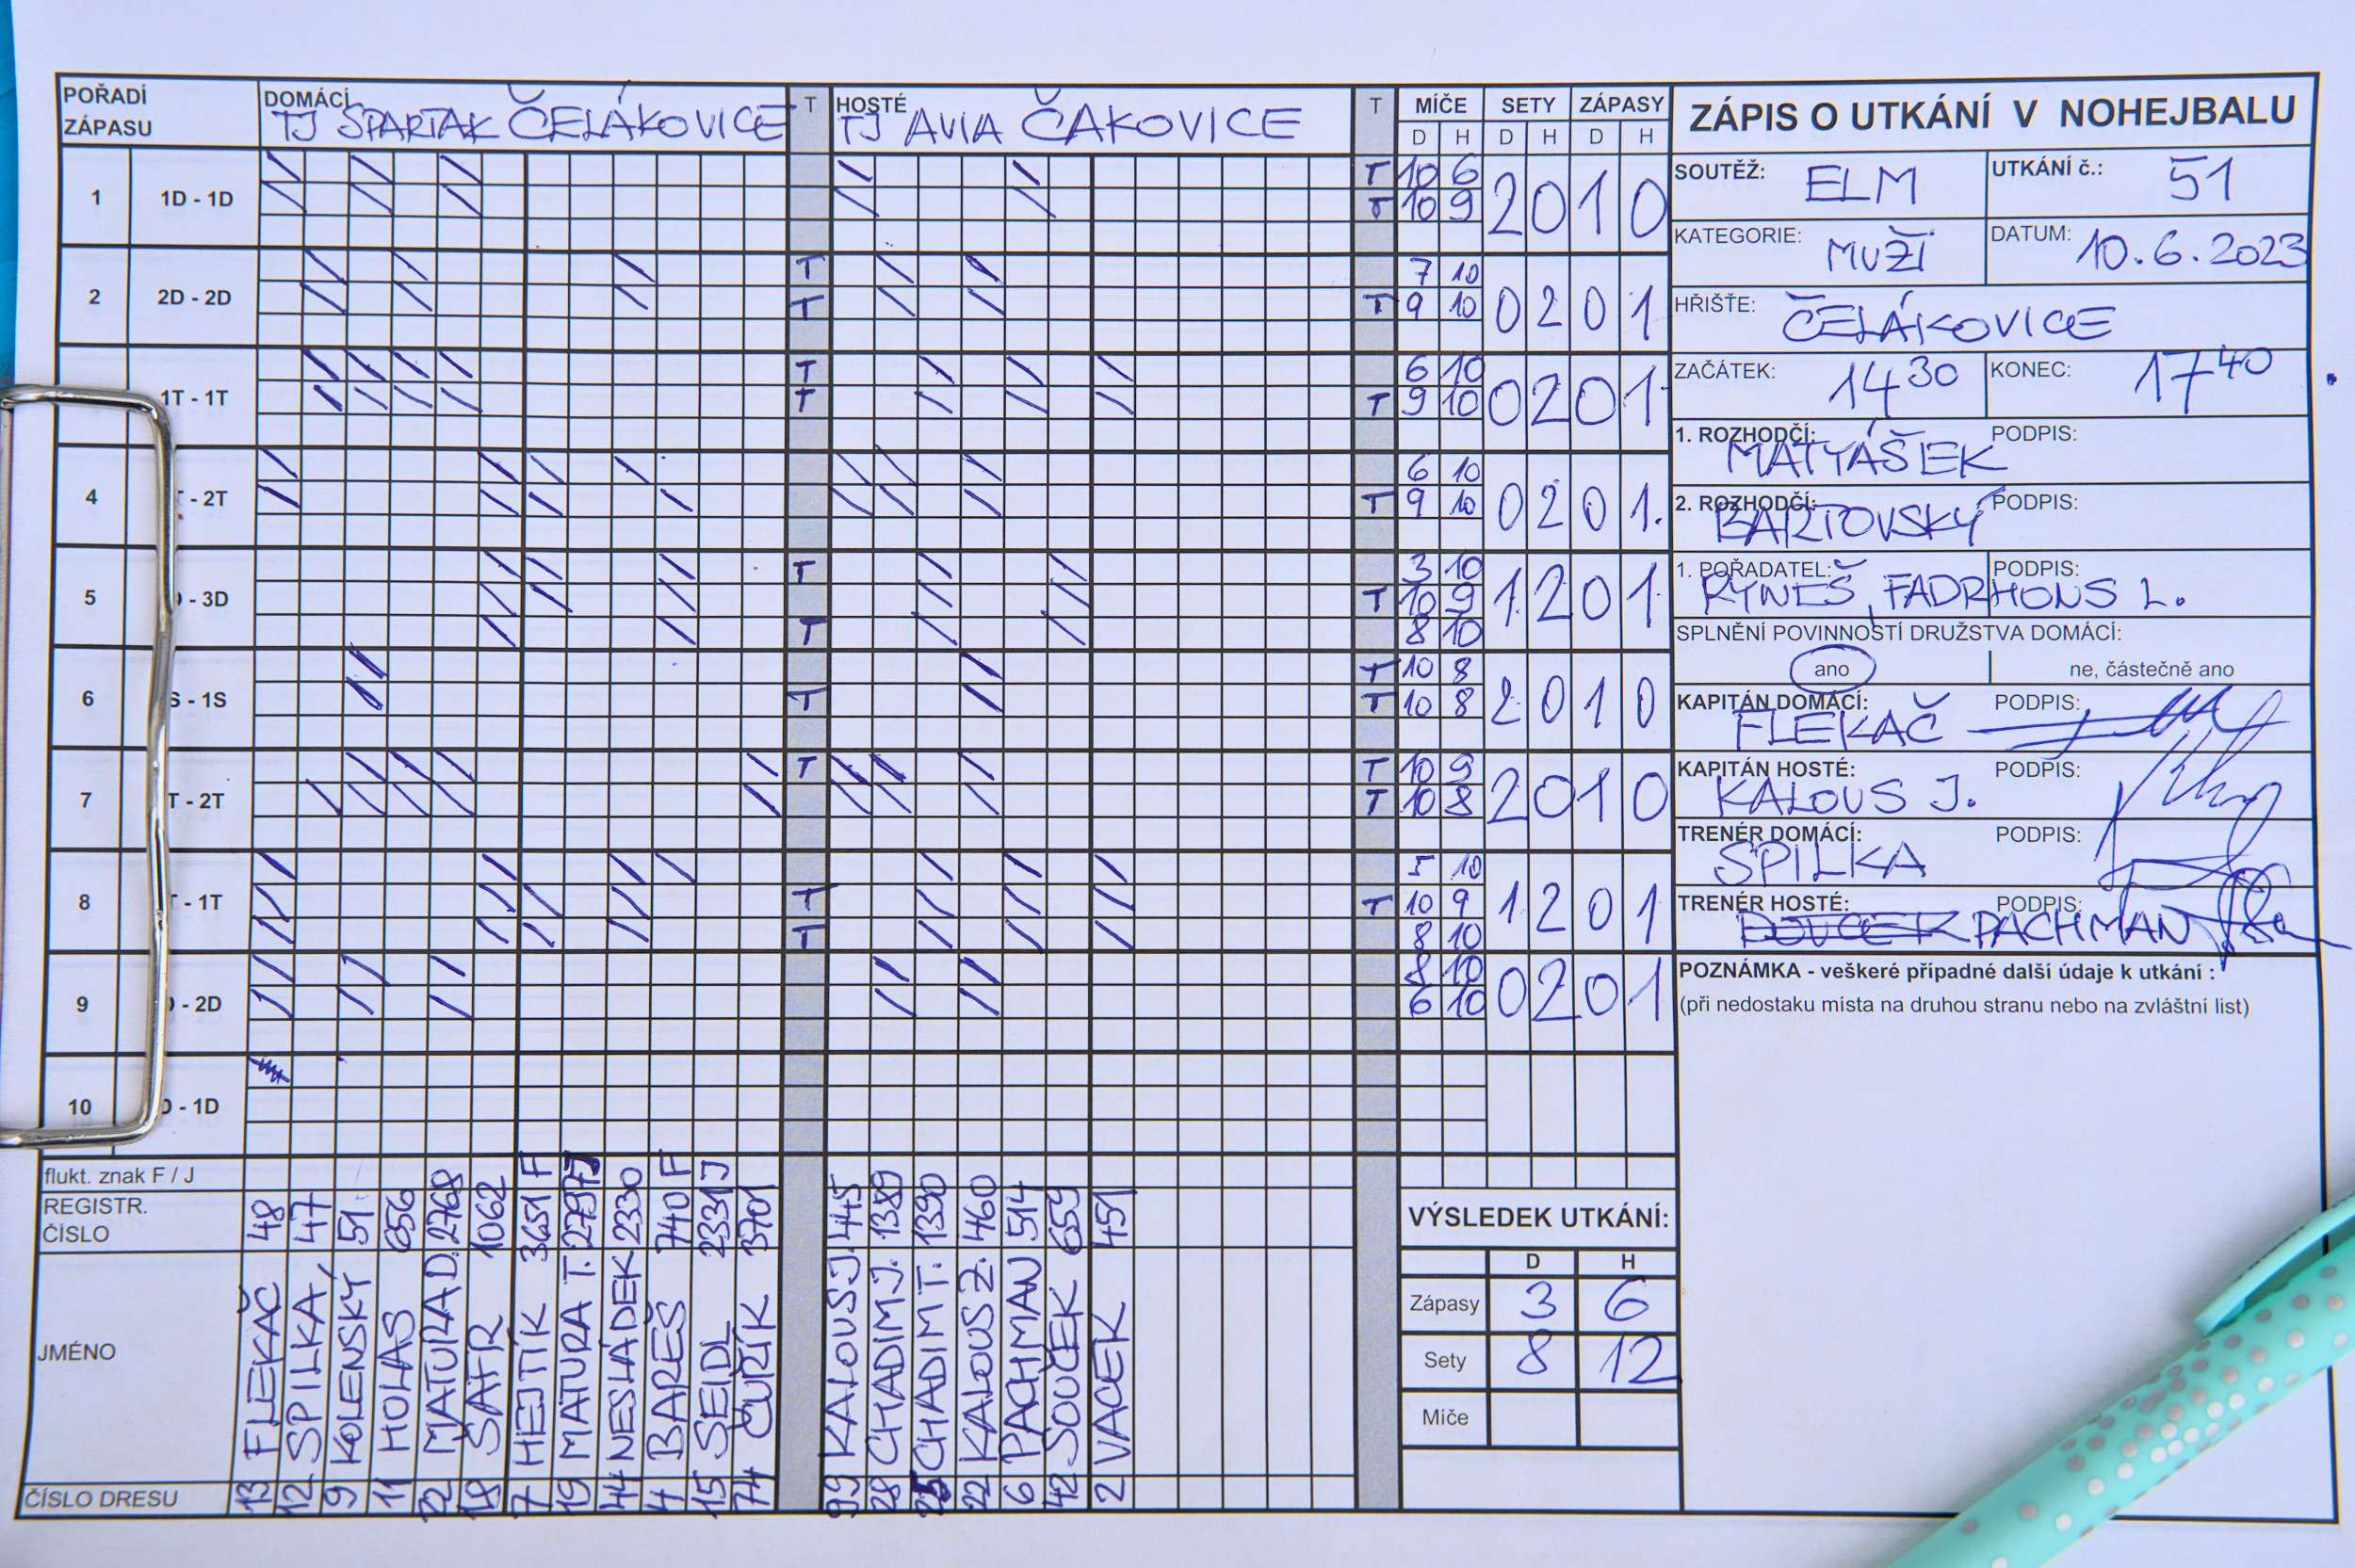 POŘADÍ ZÁPASU
DOMÁCÍ TJ SPARTAK ČELÁKOVICE T HOSTÉ TJ AVIA ČAKOVICE T
MÍČE SETY ZÁPASY
D H D H D H
ZÁPIS O UTKÁNÍ V NOHEJBALU
1 1D - 1D T 10 6 2 0 1 0
T 10 9
2 2D - 2D T 7 10 0 2 0 1
T T 9 10
1T - 1T T 6 10 0 2 0 1
T T 9 10
4 T - 2T 6 10 0 2 0 1.
T 9 10
5 - 3D T 3 10 1 2 0 1
T 10 9
T 8 10
6 S - 1S T 10 8 2 0 1 0
T T 10 8
7 T - 2T T T 10 9 2 0 1 0
T 10 8
8 - 1T 5 10 1 2 0 1
T T 10 9
T 8 10
9 - 2D 8 10 0 2 0 1
6 10
10 - 1D
SOUTĚŽ: ELM UTKÁNÍ č.: 51
KATEGORIE: MUŽI DATUM: 10.6.2023
HŘIŠTĚ: ČELÁKOVICE
ZAČÁTEK: 14 30 KONEC: 17 40
1. ROZHODČÍ: MATYÁŠEK PODPIS:
2. ROZHODČÍ: BARTOVSKÝ PODPIS:
1. POŘADATEL: RYNEŠ, FADRHONS L. PODPIS:
SPLNĚNÍ POVINNOSTÍ DRUŽSTVA DOMÁCÍ:
ano ne, částečně ano
KAPITÁN DOMÁCÍ: FLEKAČ PODPIS:
KAPITÁN HOSTÉ: KALOUS J. PODPIS:
TRENÉR DOMÁCÍ: SPILKA PODPIS:
TRENÉR HOSTÉ: PACHMAN PODPIS:
POZNÁMKA - veškeré případné další údaje k utkání :
(při nedostaku místa na druhou stranu nebo na zvláštní list)
flukt. znak F / J
REGISTR. ČÍSLO
JMÉNO
ČÍSLO DRESU
13 FLEKAČ 48
12 SPILKA 47
9 KOLENSKÝ 51
11 HOLAS 656
22 MATURA D. 2768
18 ŠAFR 1062
7 HEJTÍK 3651 F
19 MATURA T. J
44 NESLÁDEK 2330
4 BAREŠ 740 F
15 SEIDL 2331 J
74 ČUŘÍK 3701
99 KALOUS J. 445
28 CHADIM J. 1389
25 CHADIM T. 1390
22 KALOUS Z. 460
6 PACHMAN 514
42 SOUČEK 659
2 VACEK 451
VÝSLEDEK UTKÁNÍ:
D H
Zápasy 3 6
Sety 8 12
Míče